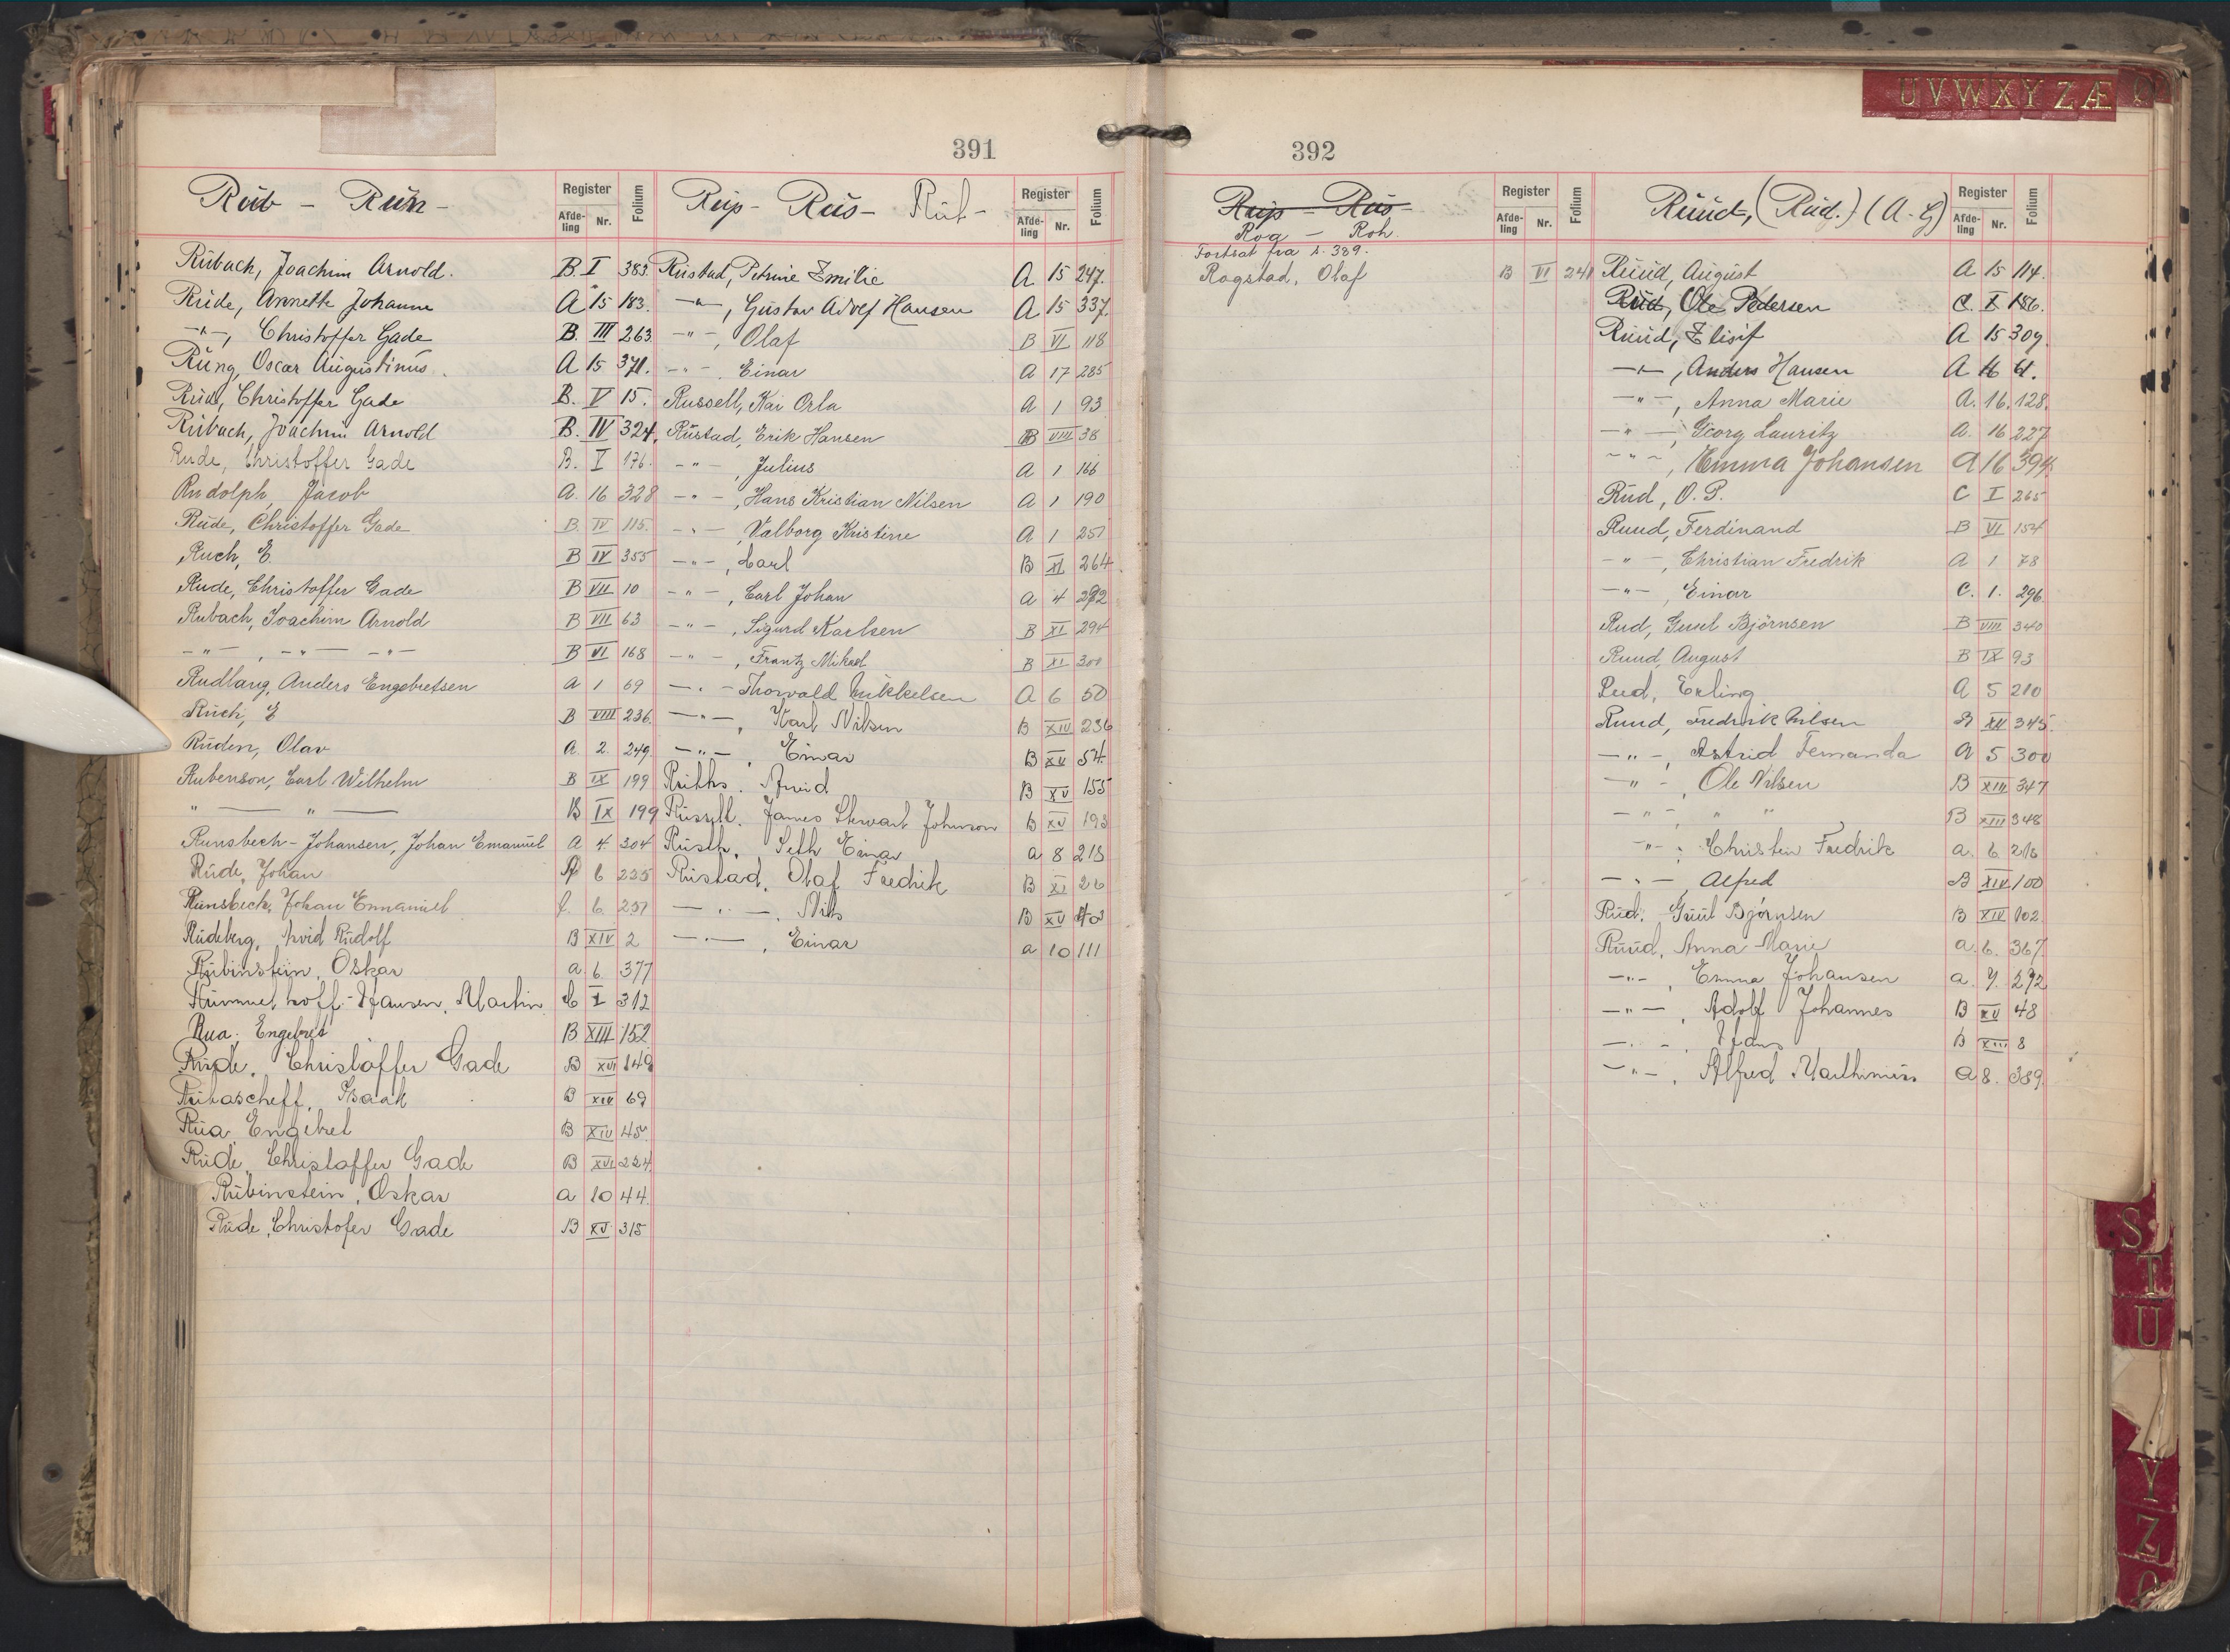 U V W X Y Z Æ
391
Rüb - Rün -
Register
Afde-
ling
Nr.
Folium
Rübach, Joachim Arnold. B. I 383.
Rüde, Annette Johanne A 15 183.
-"-, Christoffer Gade B. III 263
Rüng, Oscar Augustinüs. A 15 371.
Rüde, Christoffer Gade B. V 15.
Rübach, Joachim Arnold B. IV 324.
Rude, Christoffer Gade B. V 176.
Rudolph, Jacob A. 16 328
Rüde, Christoffer Gade B. IV 115.
Ruch, E. B IV 355
Rude, Christoffer Gade B VII 10
Rubach, Joachim Arnold B VII 63
-"-, -"- -"- B VI 168
Rudlang, Anders Engebretsen A 1 69
Ruch, E B VIII 236.
Rüden, Olav A. 2. 249.
Rubenson, Carl Wilhelm B IX 199
" " B IX 199
Runsbech-Johansen, Johan Emanüel A 4. 304
Rüde, Johan 6 225
Rünsbech, Johan Emmanüel 6. 251
Rüdeberg, Arvid Rüdolf B XIV 2
Rübinstein, Oskar a. 6. 377
Hansen, Martin I 312
Rua. Engebret B XIII 152
Rüde. Christoffer Gade B XVI 149
Isaak B XIV 69
Rüa Engebret B XIV 45.
Rüde, Christoffer Gade B XVI 224
Rübinstein, Oskar a 10 44.
Rüde, Christofer Gade B XV 315
Rüp- Rüs- Rüt-
Register
Afde-
ling
Nr.
Folium
Rüstad, Petrine Emilie A 15 247.
-"-, Güstav Adolf Hansen A 15 337.
-"-, Olaf B VI 118
-"-. Einar A 17 285
Russell, Kai Orla A 1 93
Rüstad, Erik Hansen B VIII 38
-"-, Julius A 1 166
-"-, Hans Kristian Nilsen A 1 190
-"-, Valborg Kristine A 1 251
-"-, Carl B XI 264.
-"-, Carl Johan A 4 292
-"-, Sigurd Karlsen B XI 294
-"-, Frantz Mikael B XI 300
-"- Thorvald Mikkelsen A 6 50
-"-, Karl Nilsen B XIV 236
-"-, Einar B XV 54.
Arvid B XV 155
James Stewart Johnson B XV 193
Seth Einar a 8 218
Rüstad, Olaf Fredrik B XI 26
-"-, Nils B XV
-"-, Einar a 10 111
392
Rüp - Rüs -
Rog - Roh.
Register
Afde-
ling
Nr.
Folium
Fortsat fra s. 389.
Rogstad, Olaf B VI 241
Rüüd, (Rüd.) (A-G)
Register
Afde-
ling
Nr.
Folium
Rüüd, Aügüst A 15 114.
Rüd, Ole Pedersen C. I 186.
Rüüd, Elisif A 15 309.
-"-, Anders Hansen A 16 61.
-"-, Anna Marie A. 16. 128.
-"-, Georg Lauritz A. 16 227
-"-, Emma Johansen A 16 394.
Rüd, O. P. C I 265
Ruud, Ferdinand B VI 154
-"-, Christian Fredrik A 1 78
-"-, Einar C. 1. 296.
Rud, Björnsen B VIII 340
Ruud, August B IX 93
Rud, Erling A 5 210
Ruud, Fredrik Nilsen B XII 345.
-"-, Astrid Fernanda A 5 300
-"-, Ole Nilsen B XIII 347
-"- " " B XIII 348
-"-, Fredrik a. 6. 216
-"-, Alfred B XIV 100
Rüd. Björnsen B XIV 102
Rüüd, Anna Marie a. 6. 367.
-"-, Emma Johansen a. 7. 272
-"-, Adolf Johannes B XV 48
-"-, Hans B XIII 8
-"-, Alfred Marthinius a 8. 389.
S
T
U
Y
Z